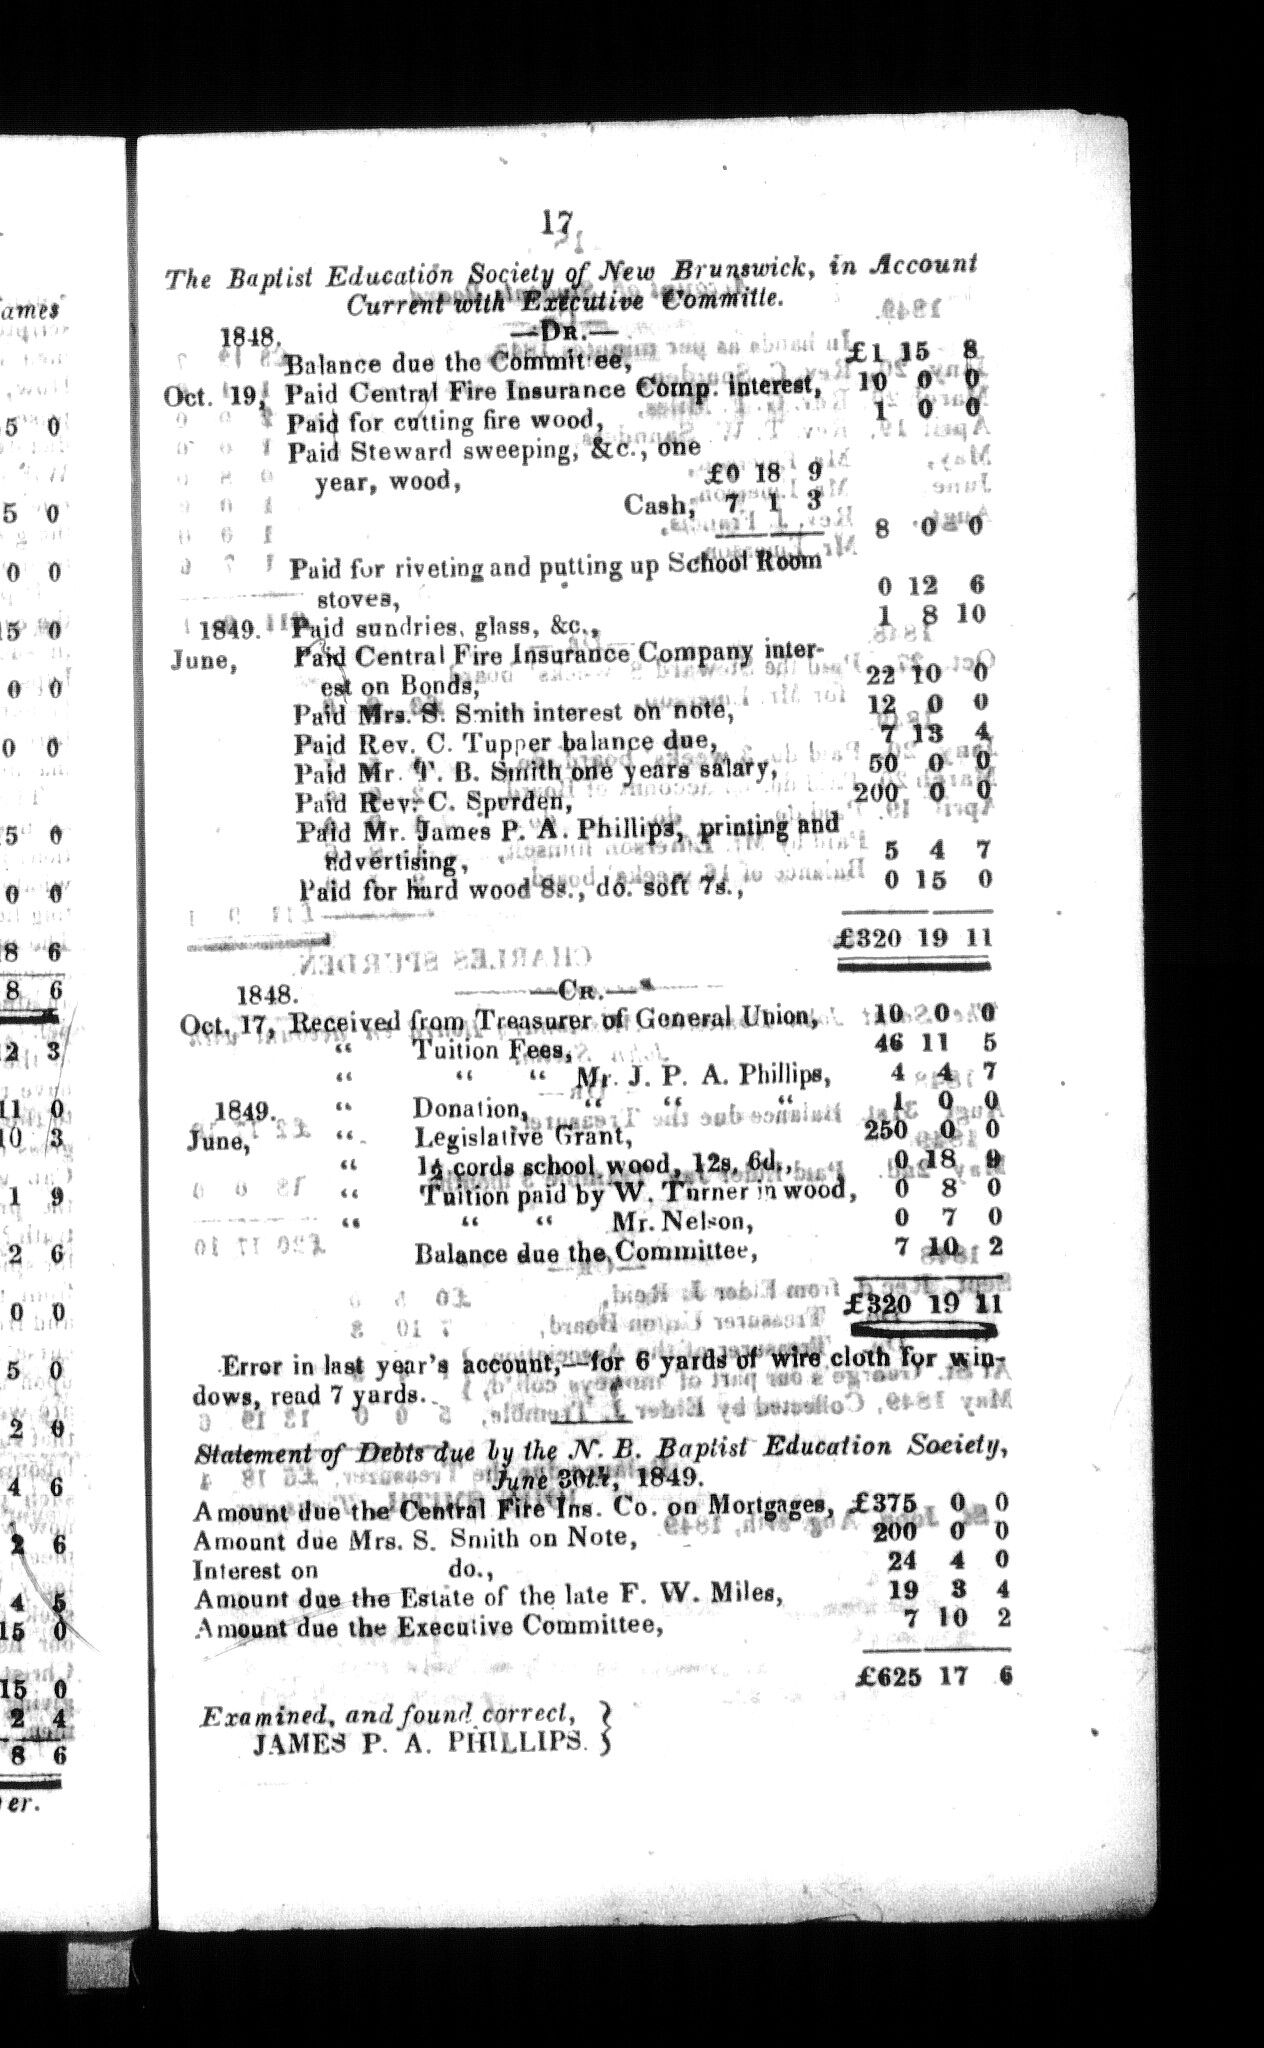 17
The Baptist Education Society of New Brunswick, in Account
Current with Executive Committe.
1848. —DR.—
Balance due the Committee, £1 15 8
Oct. 19, Paid Central Fire Insurance Comp. interest, 10 0 0
Paid for cutting fire wood, 1 0 0
Paid Steward sweeping, &c., one
year, wood, £0 18 9
Cash, 7 1 3
8 0 0
Paid for riveting and putting up School Room
stoves, 0 12 6
1849. Paid sundries, glass, &c., 1 8 10
June, Paid Central Fire Insurance Company inter-
est on Bonds, 22 10 0
Paid Mrs. S. Smith interest on note, 12 0 0
Paid Rev. C. Tupper balance due, 7 13 4
Paid Mr. T. B. Smith one years salary, 50 0 0
Paid Rev. C. Spurden, 200 0 0
Paid Mr. James P. A. Phillips, printing and
advertising, 5 4 7
Paid for hard wood 8s., do. soft 7s., 0 15 0
£320 19 11
1848. —CR.—
Oct. 17, Received from Treasurer of General Union, 10 0 0
“ Tuition Fees, 46 11 5
“ “ “ Mr. J. P. A. Phillips, 4 4 7
1849. “ Donation, “ “ “ 1 0 0
June, “ Legislative Grant, 250 0 0
“ 1½ cords school wood, 12s. 6d., 0 18 9
“ Tuition paid by W. Turner in wood, 0 8 0
“ “ “ Mr. Nelson, 0 7 0
Balance due the Committee, 7 10 2
£320 19 11
Error in last year's account,—for 6 yards of wire cloth for win-
dows, read 7 yards.
Statement of Debts due by the N. B. Baptist Education Society,
June 30th, 1849.
Amount due the Central Fire Ins. Co. on Mortgages, £375 0 0
Amount due Mrs. S. Smith on Note, 200 0 0
Interest on do., 24 4 0
Amount due the Estate of the late F. W. Miles, 19 3 4
Amount due the Executive Committee, 7 10 2
£625 17 6
Examined, and found correct, }
JAMES P. A. PHILLIPS. }